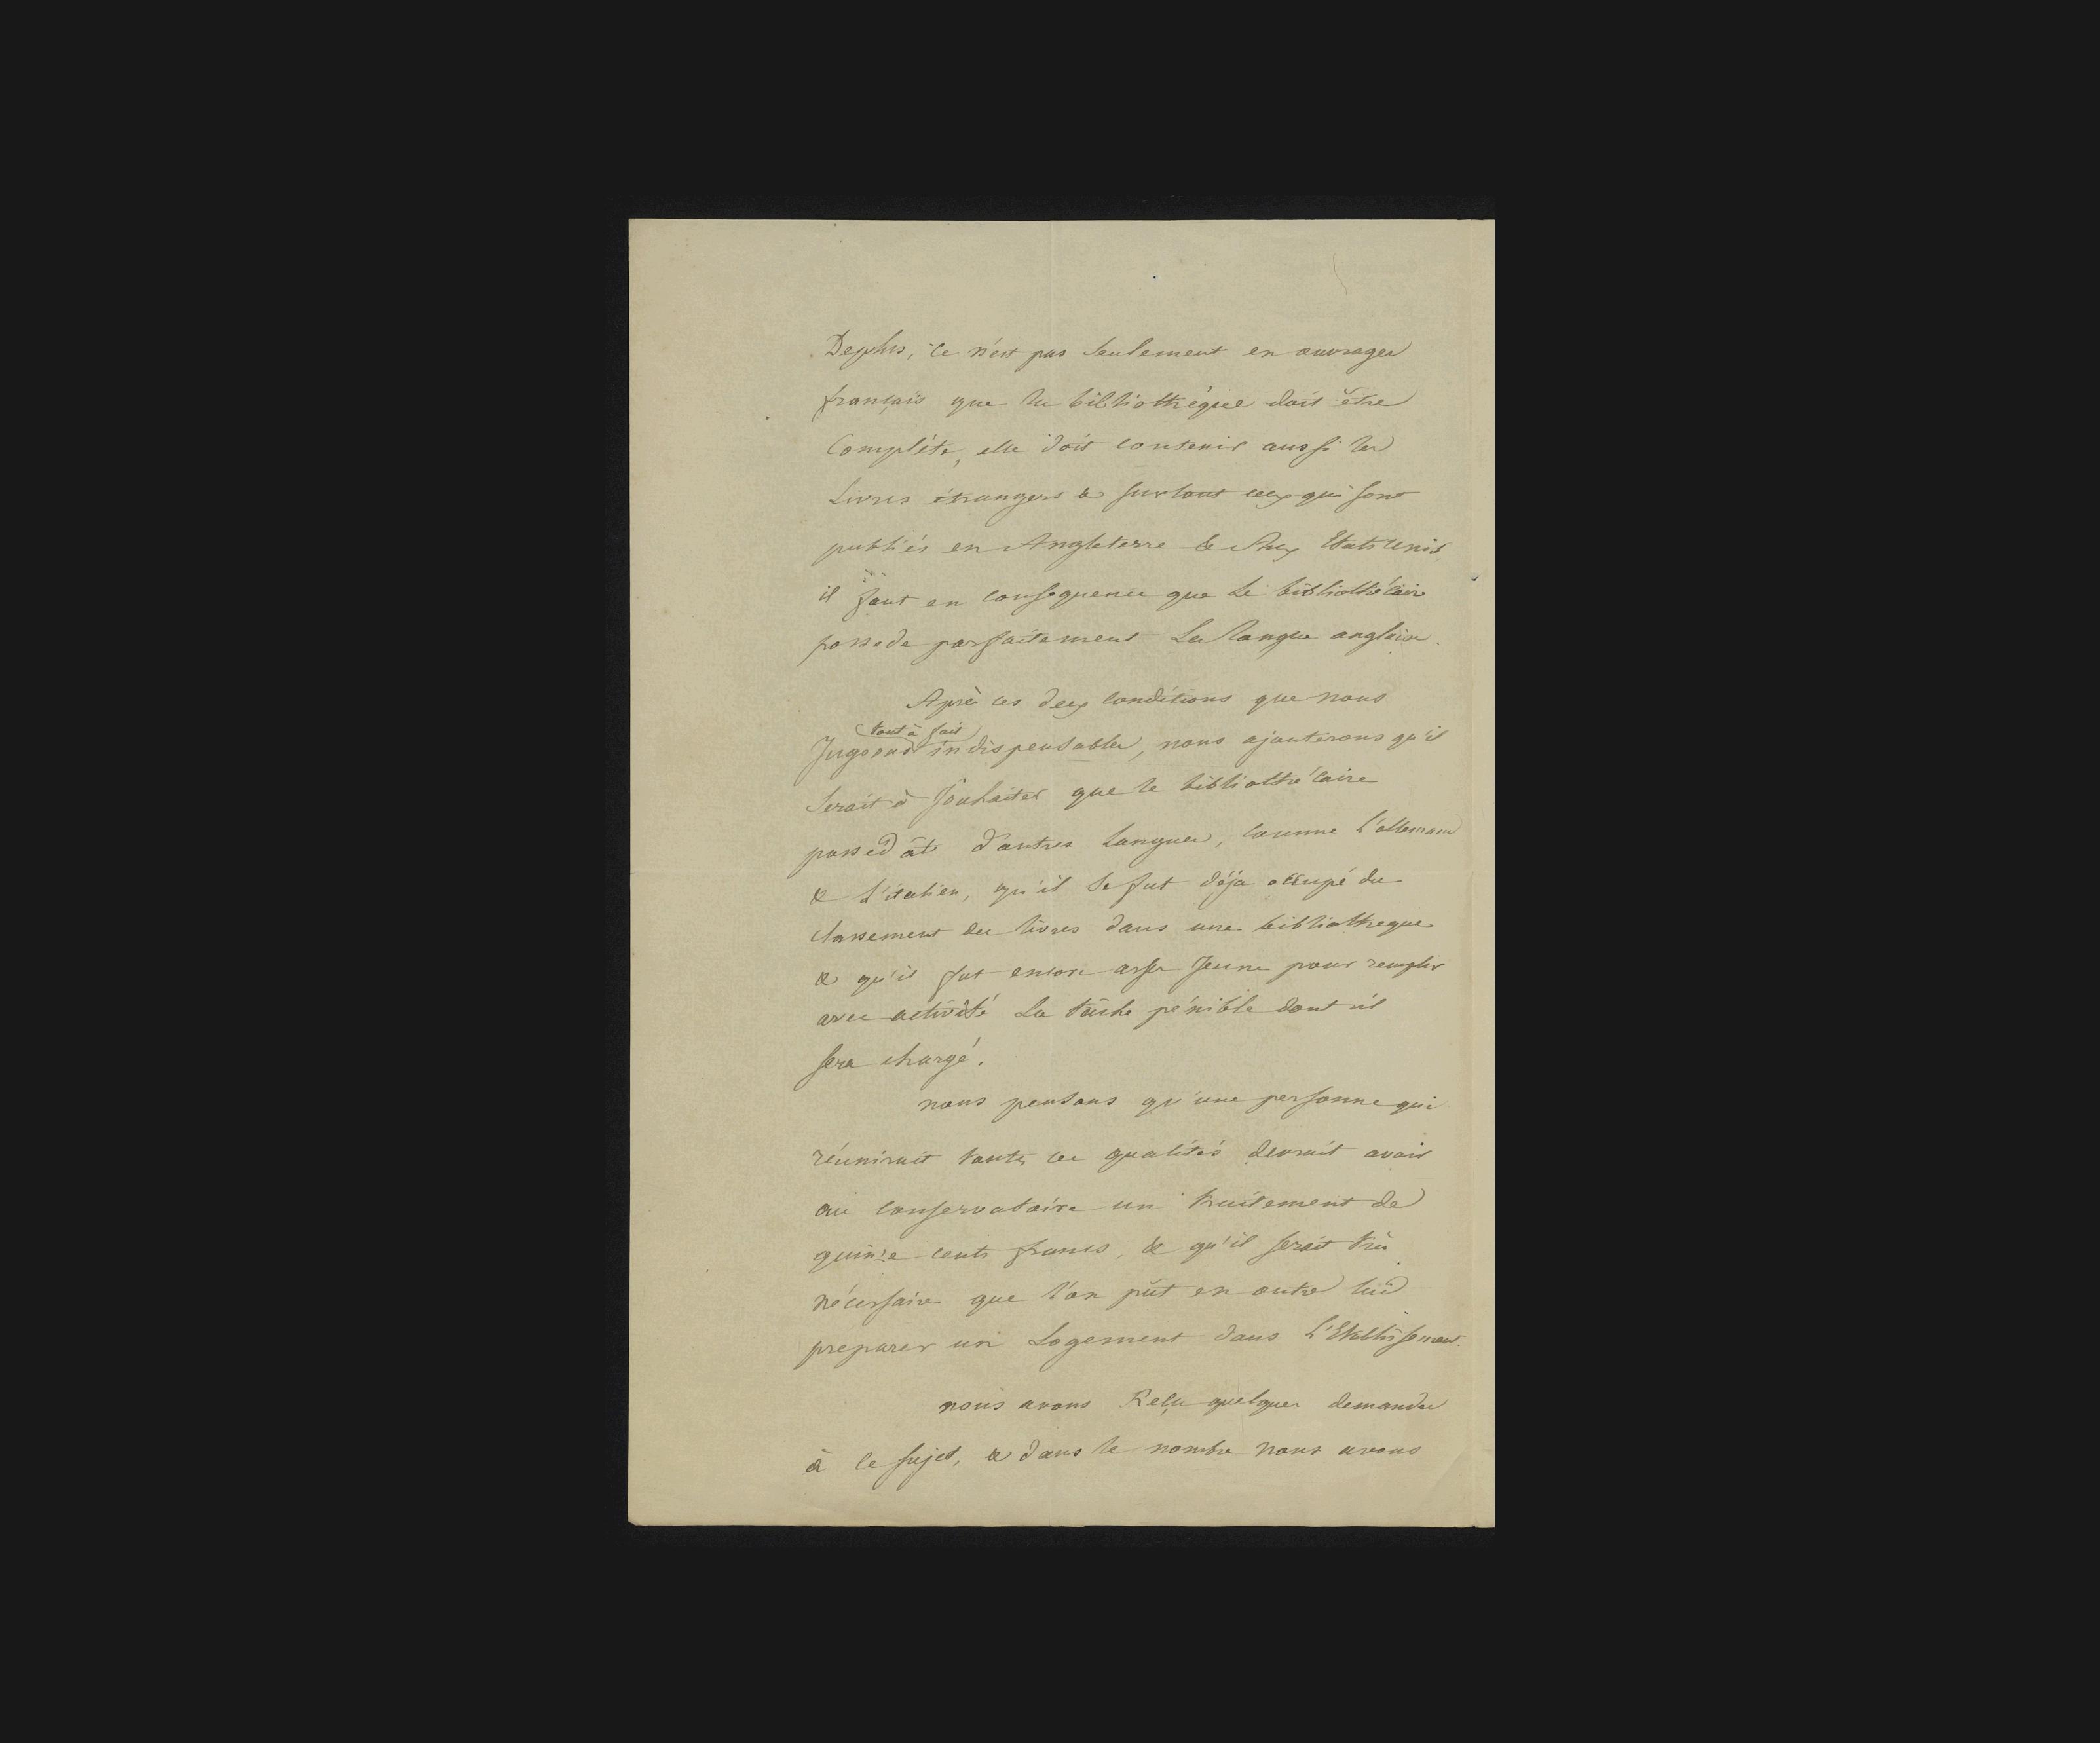 Deplus, ce n'est pas seulement en ouvrages
français que la bibliothéque doit être
Complète, elle doit contenir aussi les
Livres étrangers & surtout ceux qui sont
publiés en Angleterre & Aux Etats unis,
il faut en consequence que Le bibliothécaire
possede parfaitement La langue anglaise.
Après ces deux conditions que nous
tout à fait
Jugeons indispensables, nous ajouterons qu'il
Serait à Souhaiter que le bibliothécaire
possedât d'autres Langues, comme L'allemand
& L'italien, qu'il se fut déja occupé du
classement des livres dans une bibliotheque
& qu'il fut encore assez Jeune pour remplir
avec activité La tâche pénible dont il
sera chargé.
nous pensons qu'une personne qui
réunirait toutes ces qualités devrait avoir
au conservatoire un traitement de
quinze cents francs, & qu'il serait très
nécessaire que l'on pût en outre lui
preparer un Logement dans L'Etablissement.
nous avons Reçu quelques demandes
à ce sujet, & dans le nombre nous avons